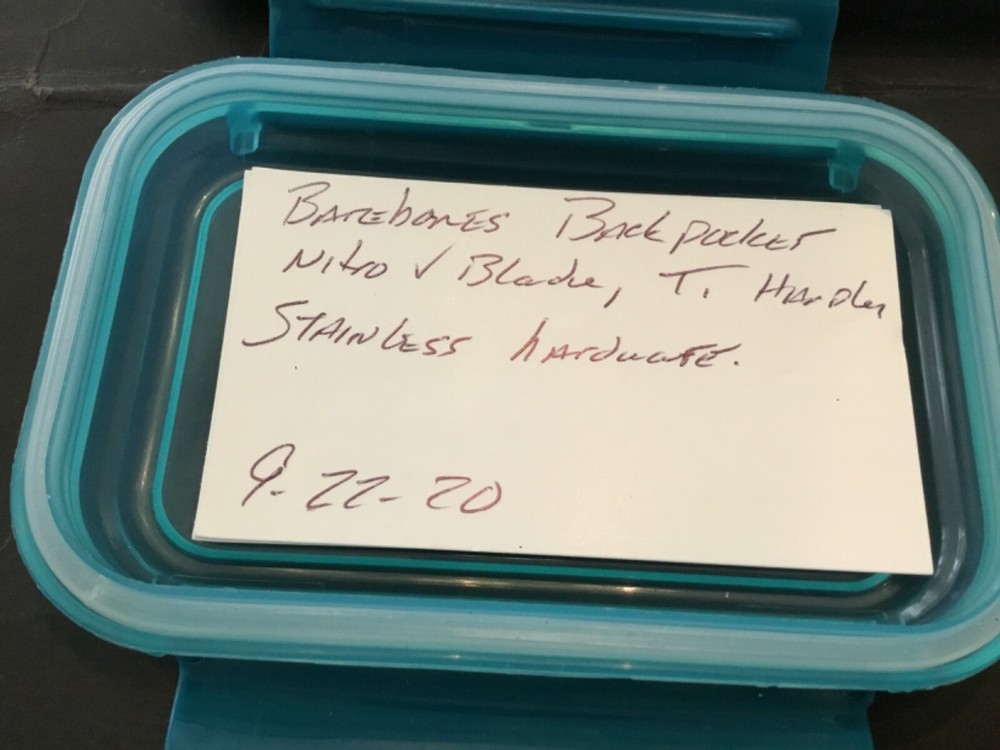 Barebones Backpocket
Nitro V Blade, T. Handle
Stainless hardware.
9-22-20